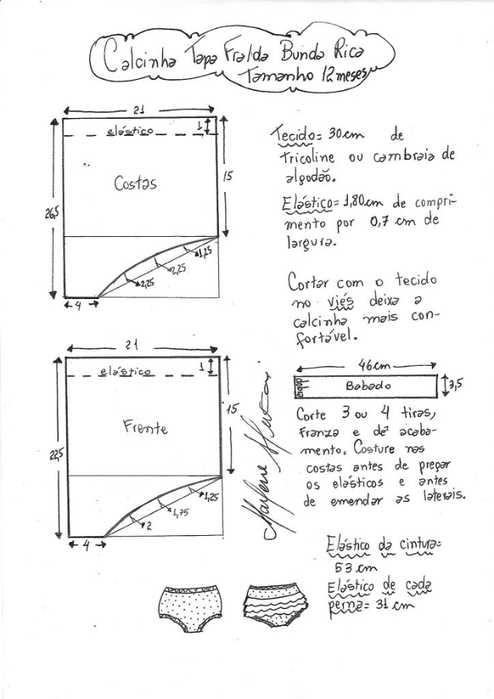 Calcinha Tapa Fralda Bunda Rica
Tamanho 12 meses
21
elástico
1
Costas
15
26,5
1,25
2,25
2,25
4
Tecido= 30cm de
tricoline ou cambraia de
algodão.
Elástico= 1,80cm de compri-
mento por 0,7 cm de
largura.
Cortar com o tecido
no viés deixa a
calcinha mais con-
fortável.
21
elástico
1
Frente
15
22,5
1,25
1,75
2
4
46cm
Babado
3,5
Corte 3 ou 4 tiras,
franza e dê acaba-
mento. Costure nas
costas antes de pregar
os elásticos e antes
de emendar as laterais.
Elástico da cintura=
53 cm
Elástico de cada
perna= 31 cm